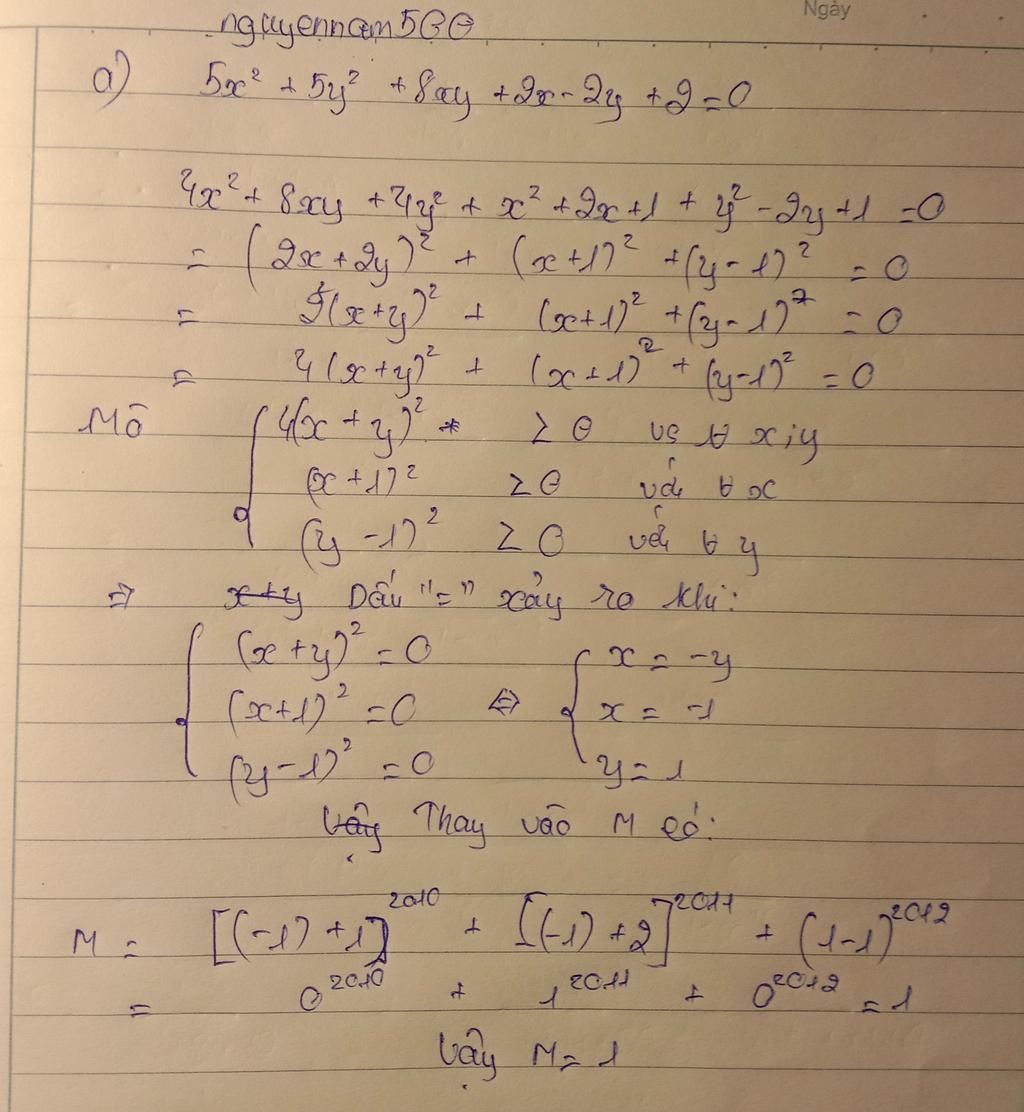 Ngày
nguyennam500
a) 5x² + 5y² + 8xy + 2x - 2y + 2 = 0
4x² + 8xy + 4y² + x² + 2x + 1 + y² - 2y + 1 = 0
= (2x + 2y)² + (x + 1)² + (y - 1)² = 0
= (x + y)² + (x + 1)² + (y - 1)² = 0
= 4(x + y)² + (x + 1)² + (y - 1)² = 0
Mà { 4(x + y)² ≥ 0 ∀ x; y
(x + 1)² ≥ 0 với ∀ x
(y - 1)² ≥ 0 với ∀ y
⇒ x+y Dấu "=" xảy ra khi:
{ (x + y)² = 0 { x = -y
(x + 1)² = 0 ⇔ x = -1
(y - 1)² = 0 y = 1
Vậy Thay vào M có:
M = [(-1) + 1]²⁰¹⁰ + [(-1) + 2]²⁰¹¹ + (1 - 1)²⁰¹²
= 0²⁰¹⁰ + 1²⁰¹¹ + 0²⁰¹² = 1
Vậy M = 1